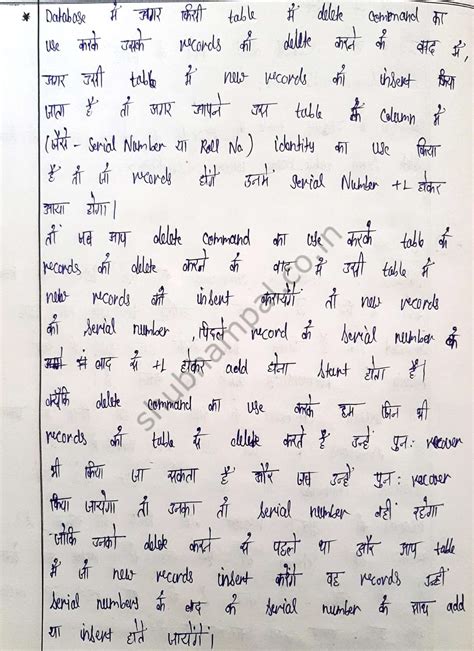 * Database में अगर किसी table में delete command का
use करके उसके records को delete करने के बाद में,
अगर उसी table में new records को insert किया
जाता है तो अगर आपने उस table के column में
(जैसे - Serial Number या Roll No.) identity का use किया
है तो जो records होंगे उनमें Serial Number +1 होकर
आया होगा।
तो जब आप delete command का use करके table के
records को delete करने के बाद में उसी table में
new records को insert करायेंगे तो new records
का serial number, पिछले record के serial number के
बाद से +1 होकर add होना start होता है।
क्योंकि delete command का use करके हम जिन भी
records को table से delete करते हैं उन्हें पुन: recover
भी किया जा सकता है और जब उन्हें पुन: recover
किया जायेगा तो उनका तो serial number वही रहेगा
जोकि उनको delete करने से पहले था और आप table
में जो new records insert करेंगे वह records उन्हीं
serial numbers के बाद के serial number के साथ add
या insert होते जायेंगे।
shubhampal.co.in